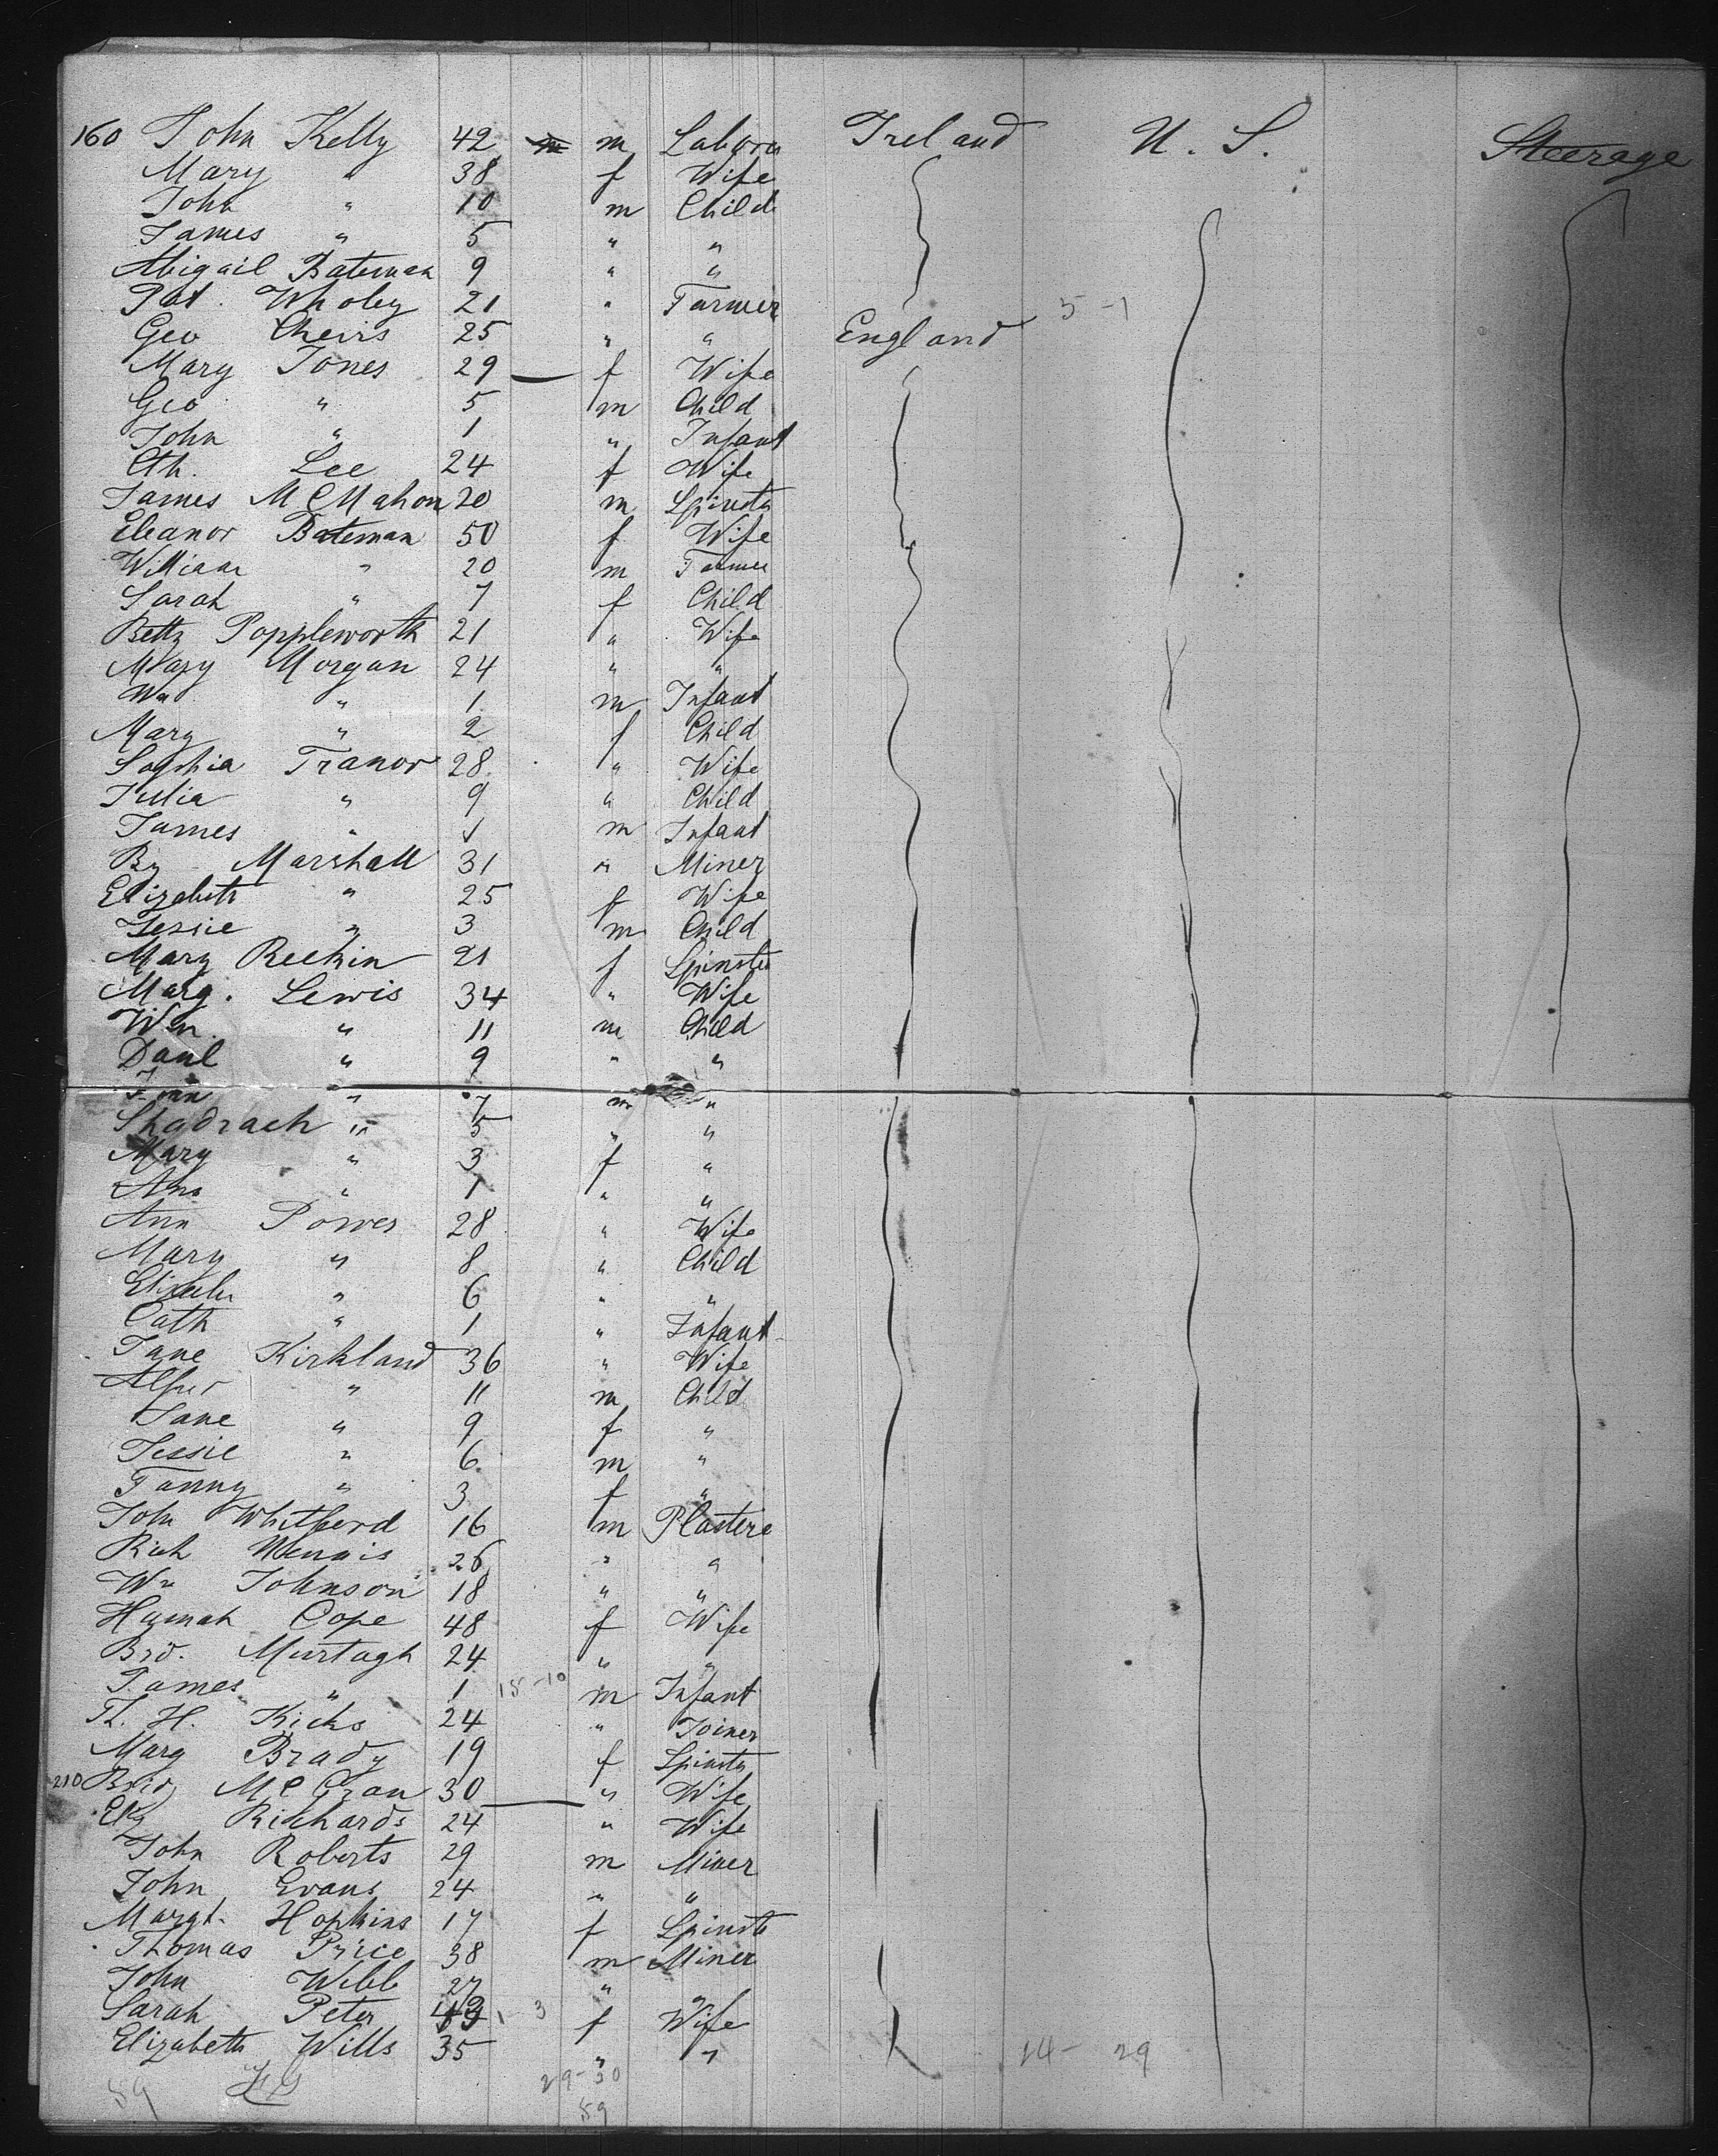 160 John Kelly 42 m Labora Ireland U. S. Steerage
Mary " 38 f Wife
John " 10 m Child
James " 5 " "
Abigail Bateman 9 " "
Pat. Wholey 21 " Farmer 5-1
Geo Cheirs 25 " " England
Mary Jones 29 — f Wife
Geo " 5 m Child
John " 1 " Infant
Cth. Lee 24 f Wife
James McMahon 20 m Spinstr
Eleanor Bateman 50 f Wife
William " 20 m Farmer
Sarah " 7 f Child
Betty Poppleworth 21 " Wife
Mary Morgan 24 " "
Wm " 1 m Infant
Mary " 2 f Child
Sophia Tranor 28 " Wife
Julia " 9 " Child
James " 1 m Infant
By Marshall 31 " Miner
Elizabeth " 25 f Wife
Jessie " 3 m Child
Mary Reekin 21 f Spinster
Marg. Lewis 34 " Wife
Wm. " 11 m Child
Danl " 9 " "
" 7 m "
Shadrach " 5 " "
Mary " 3 f "
Ann " 1 " "
Ann Power 28 " Wife
Mary " 8 " Child
" 6 " "
Cath " 1 " Infant
Jane Kirkland 36 " Wife
Alfred " 11 m Child
Jane " 9 f "
Jessie " 6 m "
Fanny " 3 f "
John Whitferd 16 m Plastere
Rich 26 " "
Wm Johnson 18 " "
Hannah Cope 48 f Wife
Brd. Murtagh 24 " "
James " 1 15-10 m Infant
Th. H. Kicks 24 " Joiner
Marg Brady 19 f Spinstr
210 Brid McGran 30 — " Wife
Elz Richards 24 " Wife
John Roberts 29 m Miner
John Evans 24 " "
Margt. Hopkins 17 f Spinstr
Thomas Price 38 m Miner
John Webb 27 " "
Sarah Peter 1-3 f Wife
Elizabeth Wills 35 " " 14-29
59 29-30
59